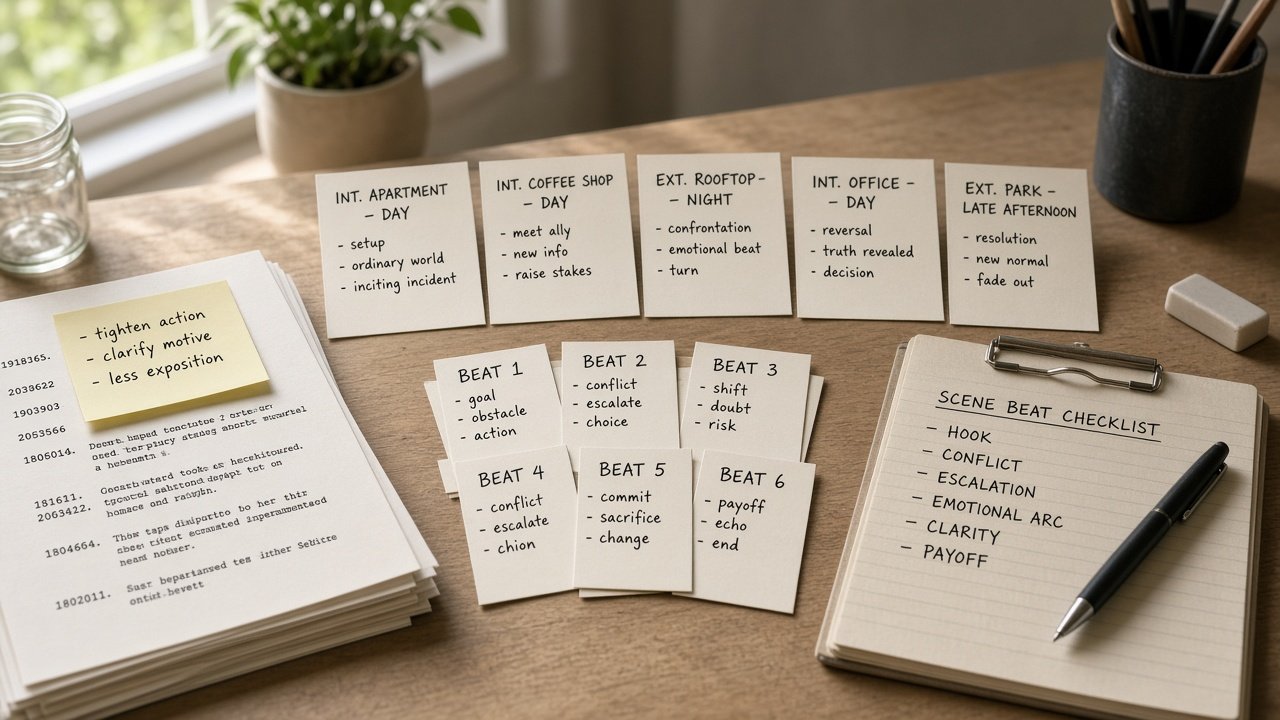 INT. APARTMENT
— DAY
- setup
- ordinary world
- inciting incident
INT. COFFEE SHOP
— DAY
- meet ally
- new info
- raise stakes
EXT. ROOFTOP —
— NIGHT
- confrontation
- emotional beat
- turn
INT. OFFICE —
— DAY
- reversal
- truth revealed
- decision
EXT. PARK —
LATE AFTERNOON
- resolution
- new normal
- fade out
- tighten action
- clarify motive
- less exposition
1918365.
2033622
1903903
2053566
1806014.
a
181611.
and
2063422.
1804664.
This
to her
1802011.
BEAT 1
- goal
- obstacle
- action
BEAT 2
- conflict
- escalate
- choice
BEAT 3
- shift
- doubt
- risk
BEAT 4
- conflict
- escalate
- chion
BEAT 5
- commit
- sacrifice
- change
BEAT 6
- payoff
- echo
- end
SCENE BEAT CHECKLIST
— HOOK
— CONFLICT
— ESCALATION
— EMOTIONAL ARC
— CLARITY
— PAYOFF